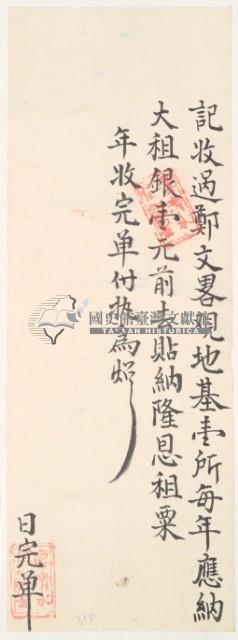 記收過鄭文畧覌地基壹所每年應納
大租銀壹元前去貼納隆恩租粟
年收完单付执為炤
日完单
國史館臺灣文獻館
TAIWAN HISTORICA